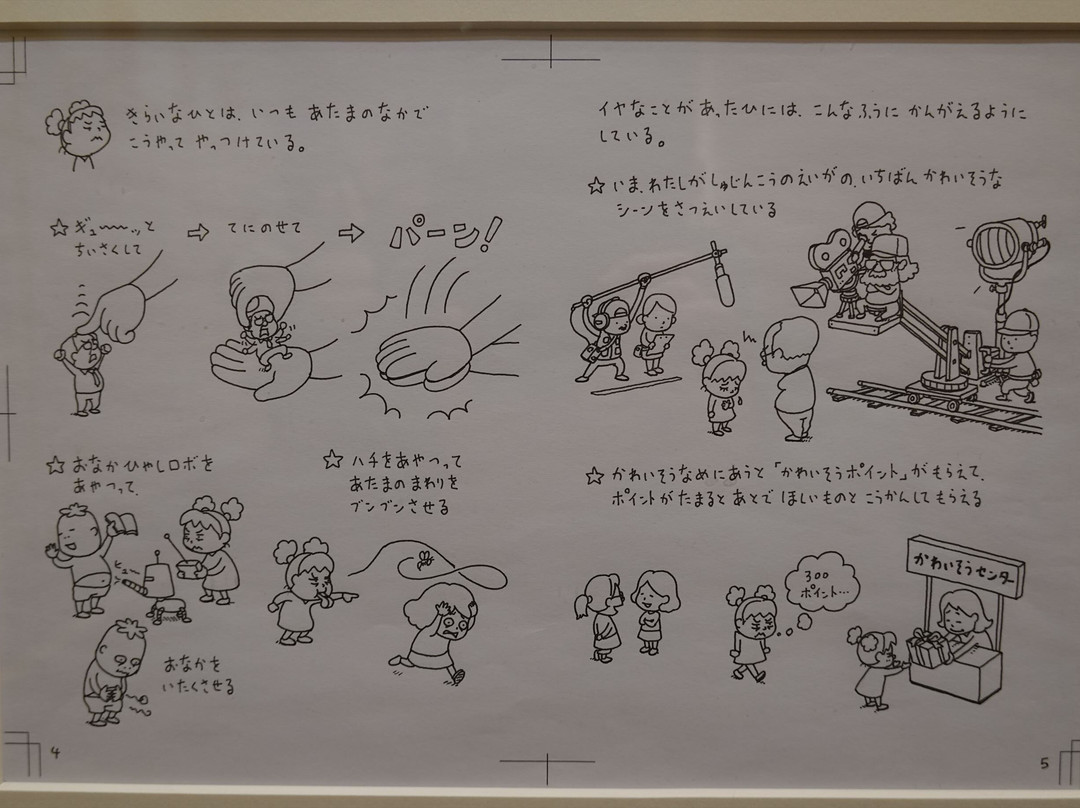 きらいなひとは、いつも あたまのなかで
こうやって やっつけている。
☆ギュ〜〜ッと
ちいさくして
⇨ てにのせて
⇨ パーン!
☆おなかひやしロボを
あやつって、
ヒュー
おなかを
いたくさせる
☆ハチをあやつって
あたまの まわりを
ブンブンさせる
4
イヤなことが あったひには、こんなふうに かんがえるように
している。
☆いま、わたしがしゅじんこうのえいがの、いちばん かわいそうな
シーンをさつえいしている
☆かわいそうなめにあうと「かわいそうポイント」がもらえて、
ポイントがたまると あとで ほしいものと こうかんしてもらえる
300
ポイント…
かわいそうセンター
5